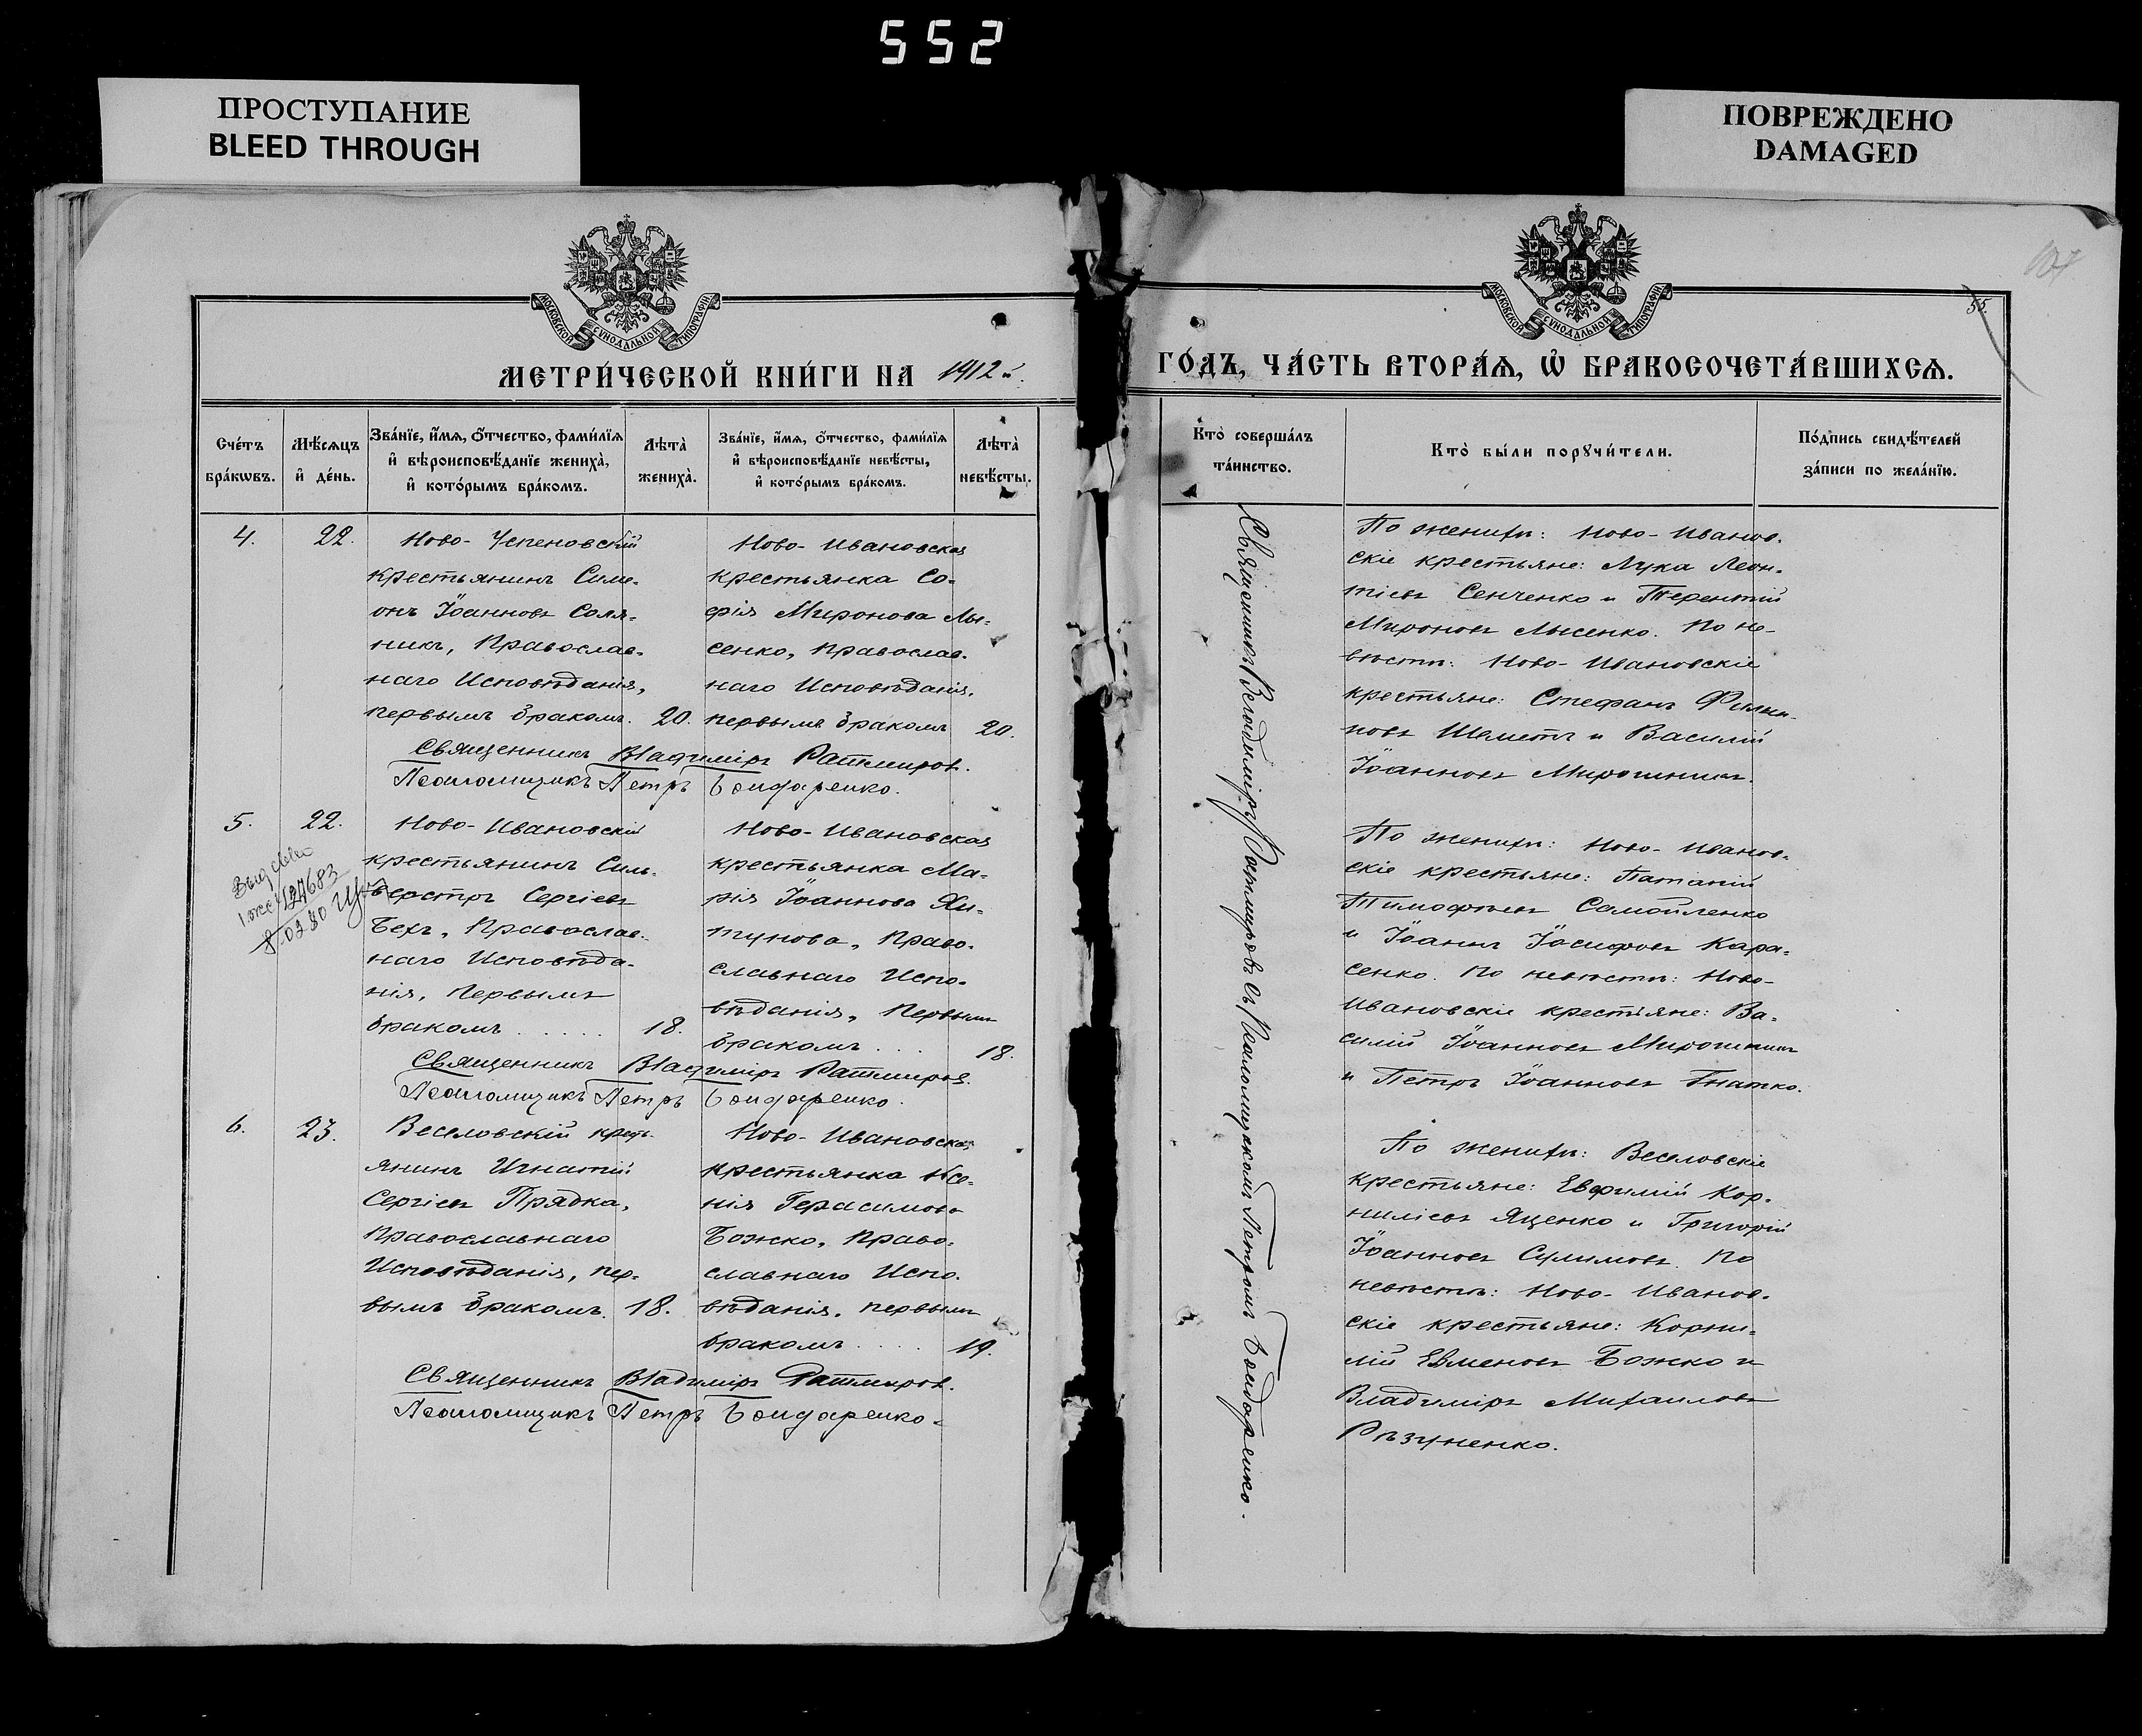 552
ПРОСТУПАНИЕ
BLEED THROUGH
ПОВРЕЖДЕНО
DAMAGED
МОСКОВСКОЙ СѴНОДАЛЬНОЙ ТИПОГРАФІИ
МЕТРИ́ЧЕСКОЙ КНИ́ГИ НА 1912й.
Сче́тъ бра́кѡвъ.
Мѣ́сѧцъ и҆ де́нь.
Зва́нїе, и҆́мѧ, ѻ҆́тчество, фами́лїѧ
и҆ вѣроисповѣ́данїе жениха̀,
и҆ кото́рымъ бра́комъ.
Лѣта̀ жениха̀.
Зва́нїе, и҆́мѧ, ѻ҆́тчество, фами́лїѧ
и҆ вѣроисповѣ́данїе невѣ́сты,
и҆ кото́рымъ бра́комъ.
Лѣта̀ невѣ́сты.
4.
22.
Ново-Успеновскій
крестьянинъ Симе-
онъ Іоанновъ Соля-
никъ, Православ-
наго Исповѣданія,
первымъ бракомъ.
20.
Ново-Ивановская
крестьянка Со-
фія Миронова Лы-
сенко, Православ-
наго Исповѣданія,
первымъ бракомъ
20.
Священникъ Владиміръ Ратмировъ.
Псаломщикъ Петръ Бондаренко.
5.
22.
127683
Ново-Ивановскій
крестьянинъ Силь-
верстръ Сергіевъ
Бехъ, Православ-
наго Исповѣда-
нія, Первымъ
бракомъ . . . . .
18.
Ново-Ивановская
крестьянка Ма-
рія Іоаннова
тунова, Право-
славнаго Испо-
вѣданія, Первымъ
бракомъ . . .
18.
Священникъ Владиміръ Ратмировъ.
Псаломщикъ Петръ Бондаренко.
6.
23.
Веселовскій кресть-
янинъ Игнатій
Сергіевъ Прядка,
Православнаго
Исповѣданія, пер-
вымъ бракомъ.
18.
Ново-Ивановская
крестьянка Ксе-
нія Герасимова
Божко, Право-
славнаго Испо-
вѣданія, первымъ
бракомъ . . . .
19.
Священникъ Владиміръ Ратмировъ.
Псаломщикъ Петръ Бондаренко.
107
55.
МОСКОВСКОЙ СѴНОДАЛЬНОЙ ТИПОГРАФІИ
ГО́ДЪ, ЧА́СТЬ ВТОРА́Ѧ, Ѽ БРАКОСОЧЕТА́ВШИХСѦ.
Кто̀ соверша́лъ
та́инство.
Кто̀ бы́ли порꙋчи́тели.
По́дпись свидѣ́телей
за́писи по жела́нїю.
Священникъ Владиміръ Ратмировъ съ Псаломщикомъ Петромъ Бондаренко.
По женихѣ: Ново-Иванов-
скіе крестьяне: Лука Леон-
тіевъ Сенченко и Терентій
Мироновъ Лысенко. По не-
вѣстѣ: Ново-Ивановскіе
крестьяне: Стефанъ Филип-
повъ Шеметъ и Василій
Іоанновъ Мирошникъ.
По женихѣ: Ново-Иванов-
скіе крестьяне:
Тимофѣевъ Самойленко
и Іоаннъ Іосифовъ Кара-
сенко. По невѣстѣ: Ново-
Ивановскіе крестьяне: Ва-
силій Іоанновъ Мирошникъ
и Петръ Іоанновъ Гнатко.
По женихѣ: Веселовскіе
крестьяне: Евфимій Кор-
нилісвъ Яценко и Григорій
Іоанновъ Сулимовъ. По
невѣстѣ: Ново-Иванов-
скіе крестьяне: Корни-
лій Евменовъ Божко и
Владиміръ Михаиловъ
Рѣзуненко.